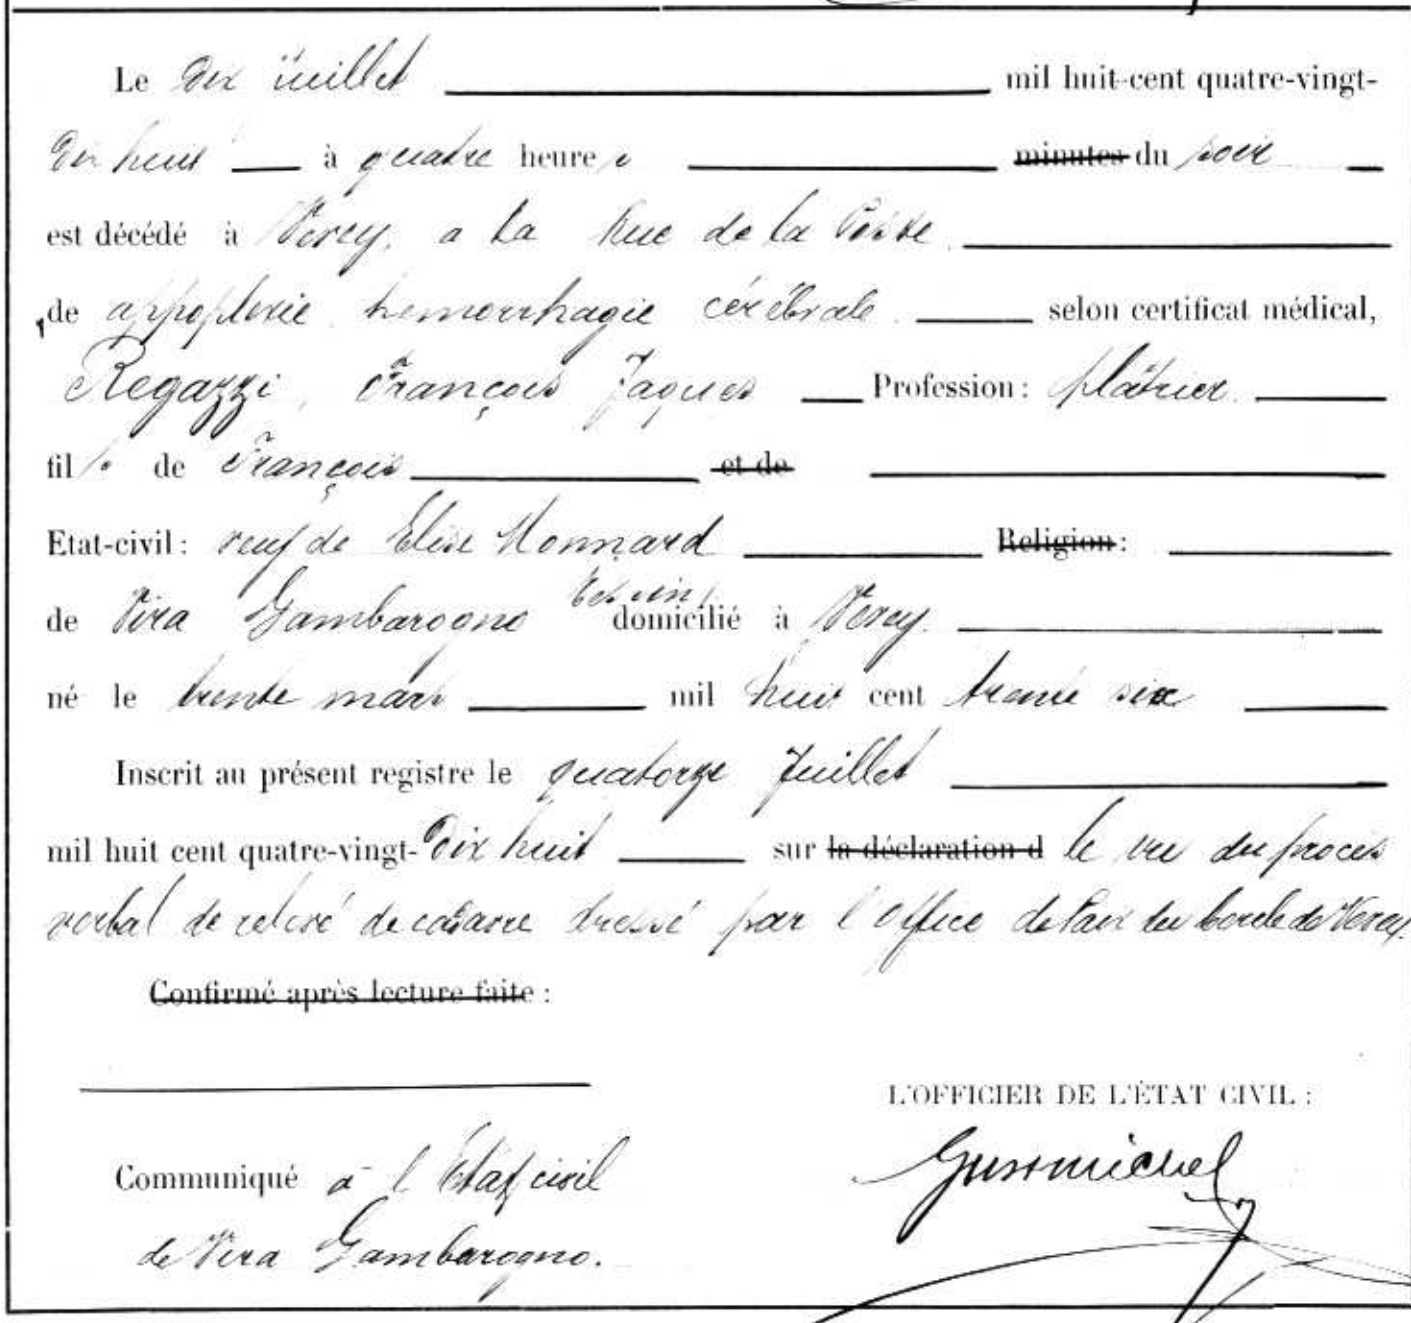 Le dix juillet mil huit-cent quatre-vingt-
dix huit à quatre heures minutes du soir
est décédé à Vevey, a la Rue de la Poste
de appoplexie hemorrhagie cérébrale selon certificat médical,
Regazzi, François Jaques Profession : plâtrier
fils de François et de
Etat-civil : veuf de Elise Monnard Religion :
de Vira Gambarogno Tessin domicilié à Vevey.
né le trente mars mil huit cent trente six
Inscrit au présent registre le quatorze Juillet
mil huit cent quatre-vingt-dix huit sur la déclaration d le vu du procès
verbal de relevé de cadavre dressé par l'Office de Paix du Cercle de Vevey.
Confirmé après lecture faite :
L'OFFICIER DE L'ÉTAT CIVIL :
Communiqué à l'Etat civil
de Vira Gambarogno.